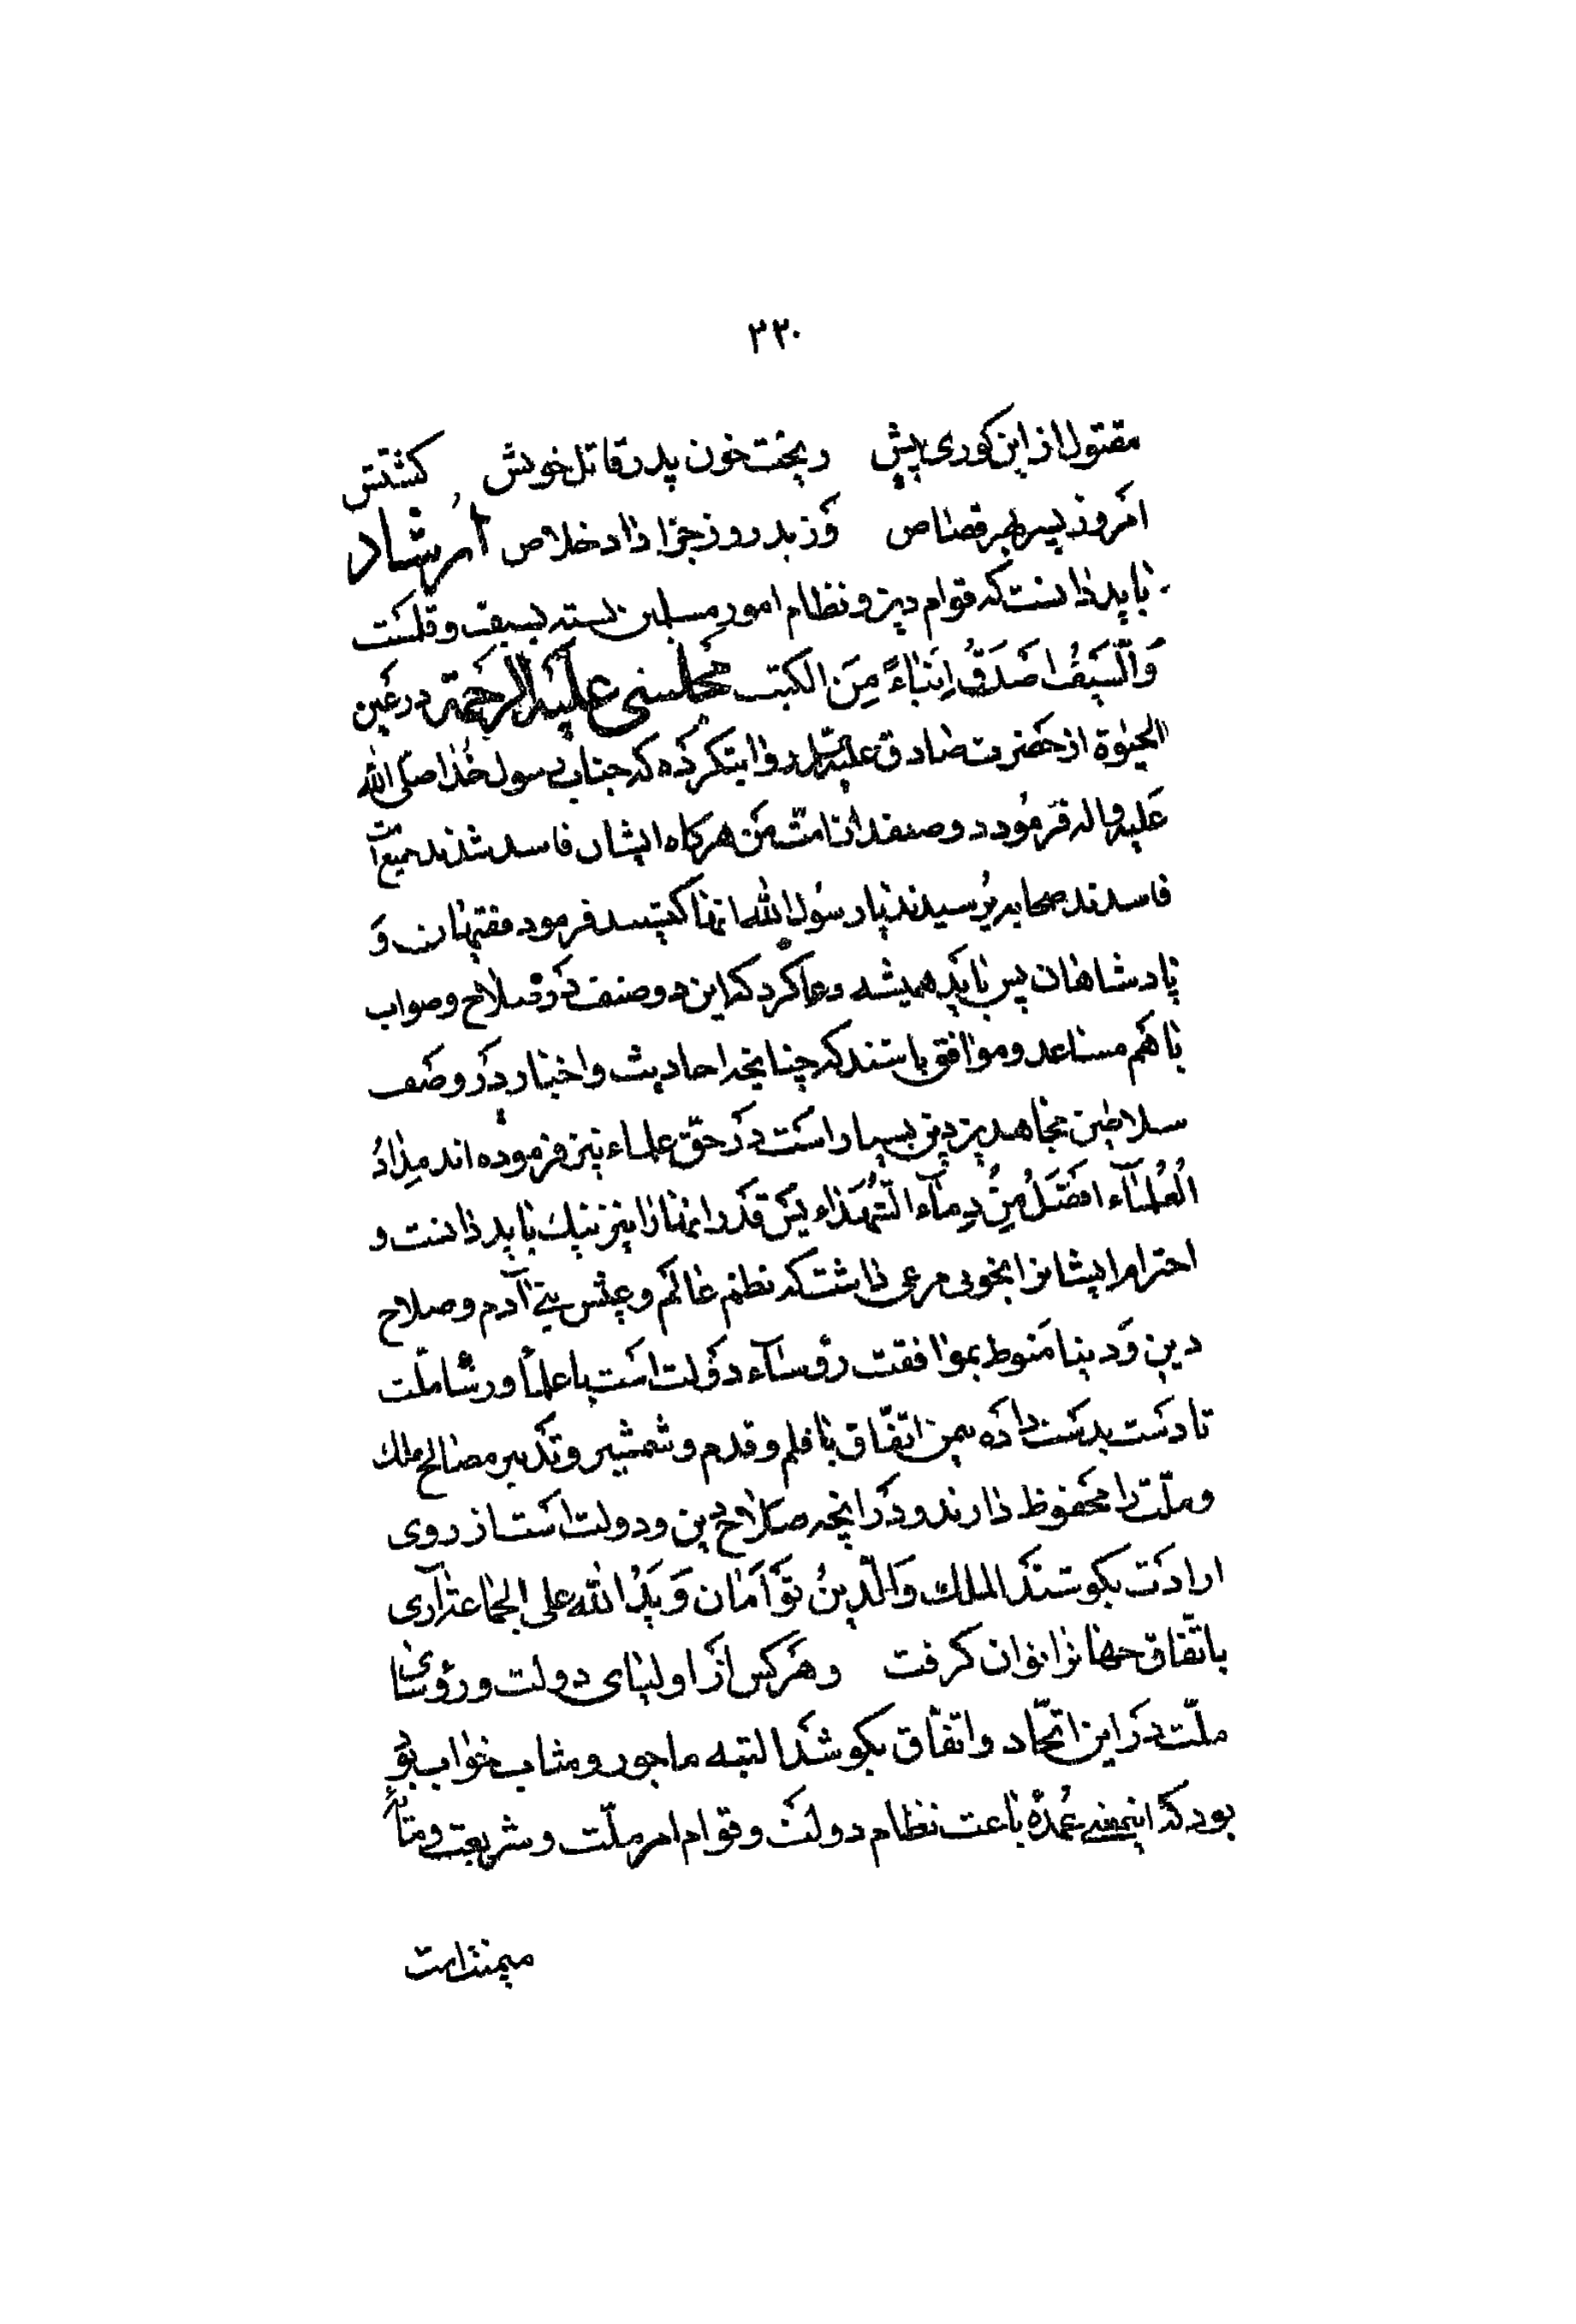 ۳۳۰
مقتول از این کوری پیش ریخت خون پدر قاتل خویش کشتش
امروز پسر بهر قصاص وز بد روز جزا داد خلاص ارشاد
باید دانست که قوام دین و نظام امور مسلمین بسته بسیف و قلمست
وَالسَّیفُ اَصْدَقُ اِنْبٰاءً مِنَ الکتب مجلسی علیه الرحمة در عین
الحیٰوة از حضرت صادق علیه السّلم روایتکرده که جناب رسول خدا صلّی الله
علیه و اله فرمود دو صنفند از امّت من هرکاه ایشان فاسد شدند جمیع امّت
فاسدند صحابه پرسیدند یا رسول الله انها کیستند فرمود فقیهان و
پادشاهان پس باید همیشه دعا کرد که این دو صنف در صلاح و صواب
با هم مساعد و موافق باشند که چنانچه احادیث و اخبار در وصف
سلاطین مجاهدین دین بسیار است در حقّ علماء نیز فرموده اند مِدٰادُ
الْعُلَمٰآء افضَلُ مِنْ دِمٰآء الشُّهَدٰاء پس قدر اینها را نیز نیک باید دانست و
احترام ایشانرا بخوبی مرعی داشت که نظم عالم و عیش بنی آدم و صلاح
دین و دنیا منوط بموافقت رؤسآء دولت است با علما و رؤسا ملّت
تا دست بدست داده بیمن اتفّاق با قلم و قدم و شمشیر و تدبیر مصالح ملک
و ملّت را محفوظ دارند و در انچه صلاح دین و دولت است از روی
ارادت بکوشند الملک وَالدّینُ تَوْأَمٰان وَ یَدُ الله علی الجماعة آری
باتّفاق جهانرا توان کرفت و هرکس از اولیای دولت و رؤسای
ملّت در این اتّحاد و اتفّاق بکوشد البته ماجور و مثاب خواب بو
بود که اینمعنی عمده باعث نظام دولت و قوام امر ملّت و شریعت و
میمنت است